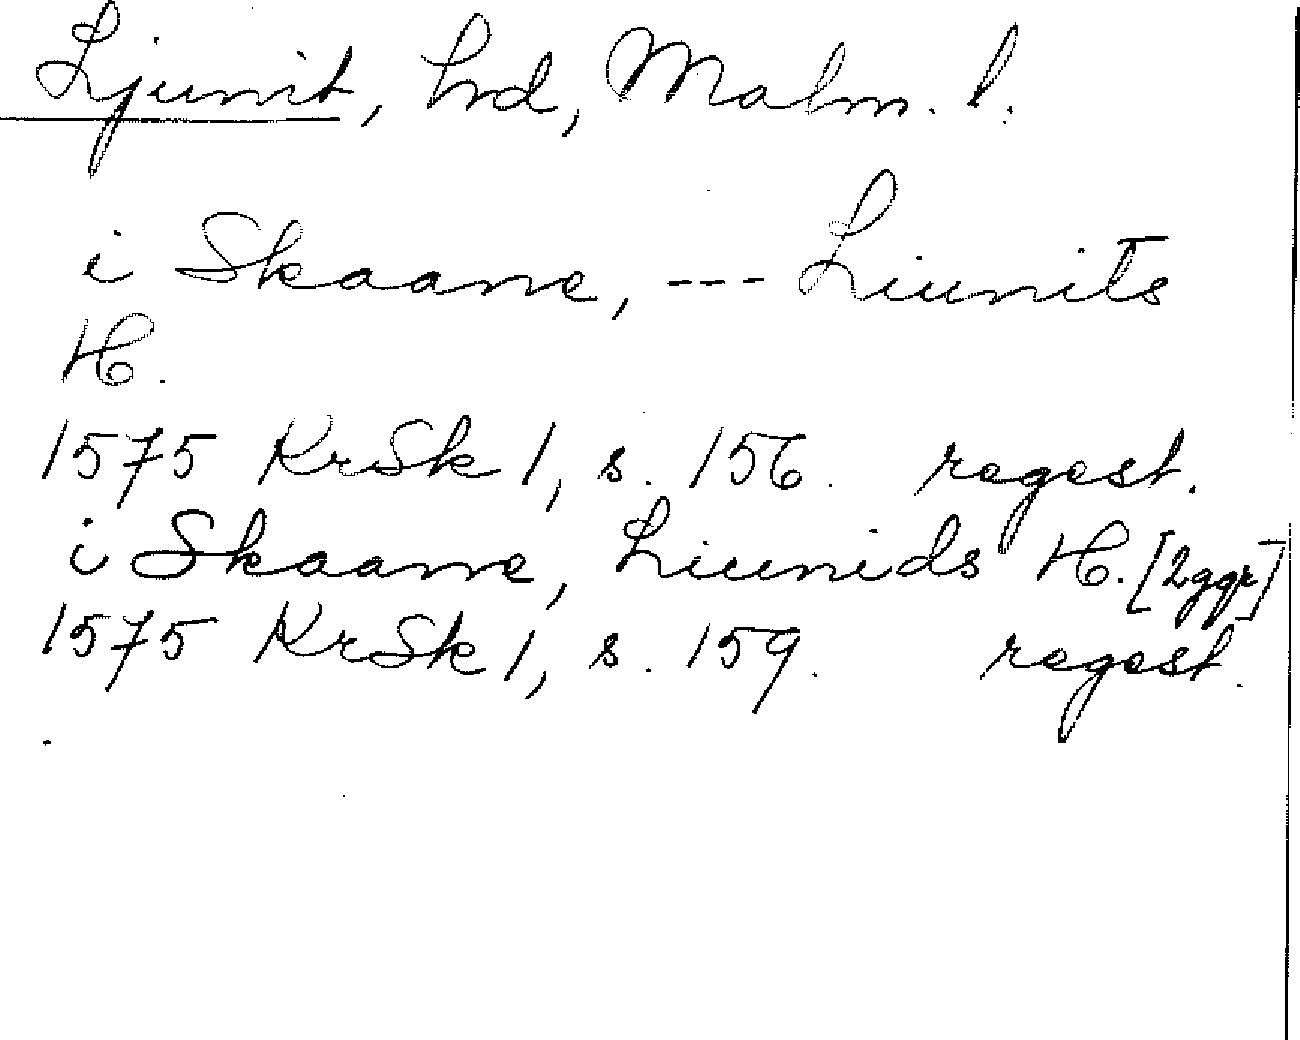 Ljunit, hrd, Malm. l.
i Skaane, --- Liunits
H.
1575 KrSk 1, s. 156. regest.
i Skaane, Liunids H. [2ggr]
1575 KrSk 1, s. 159. regest.